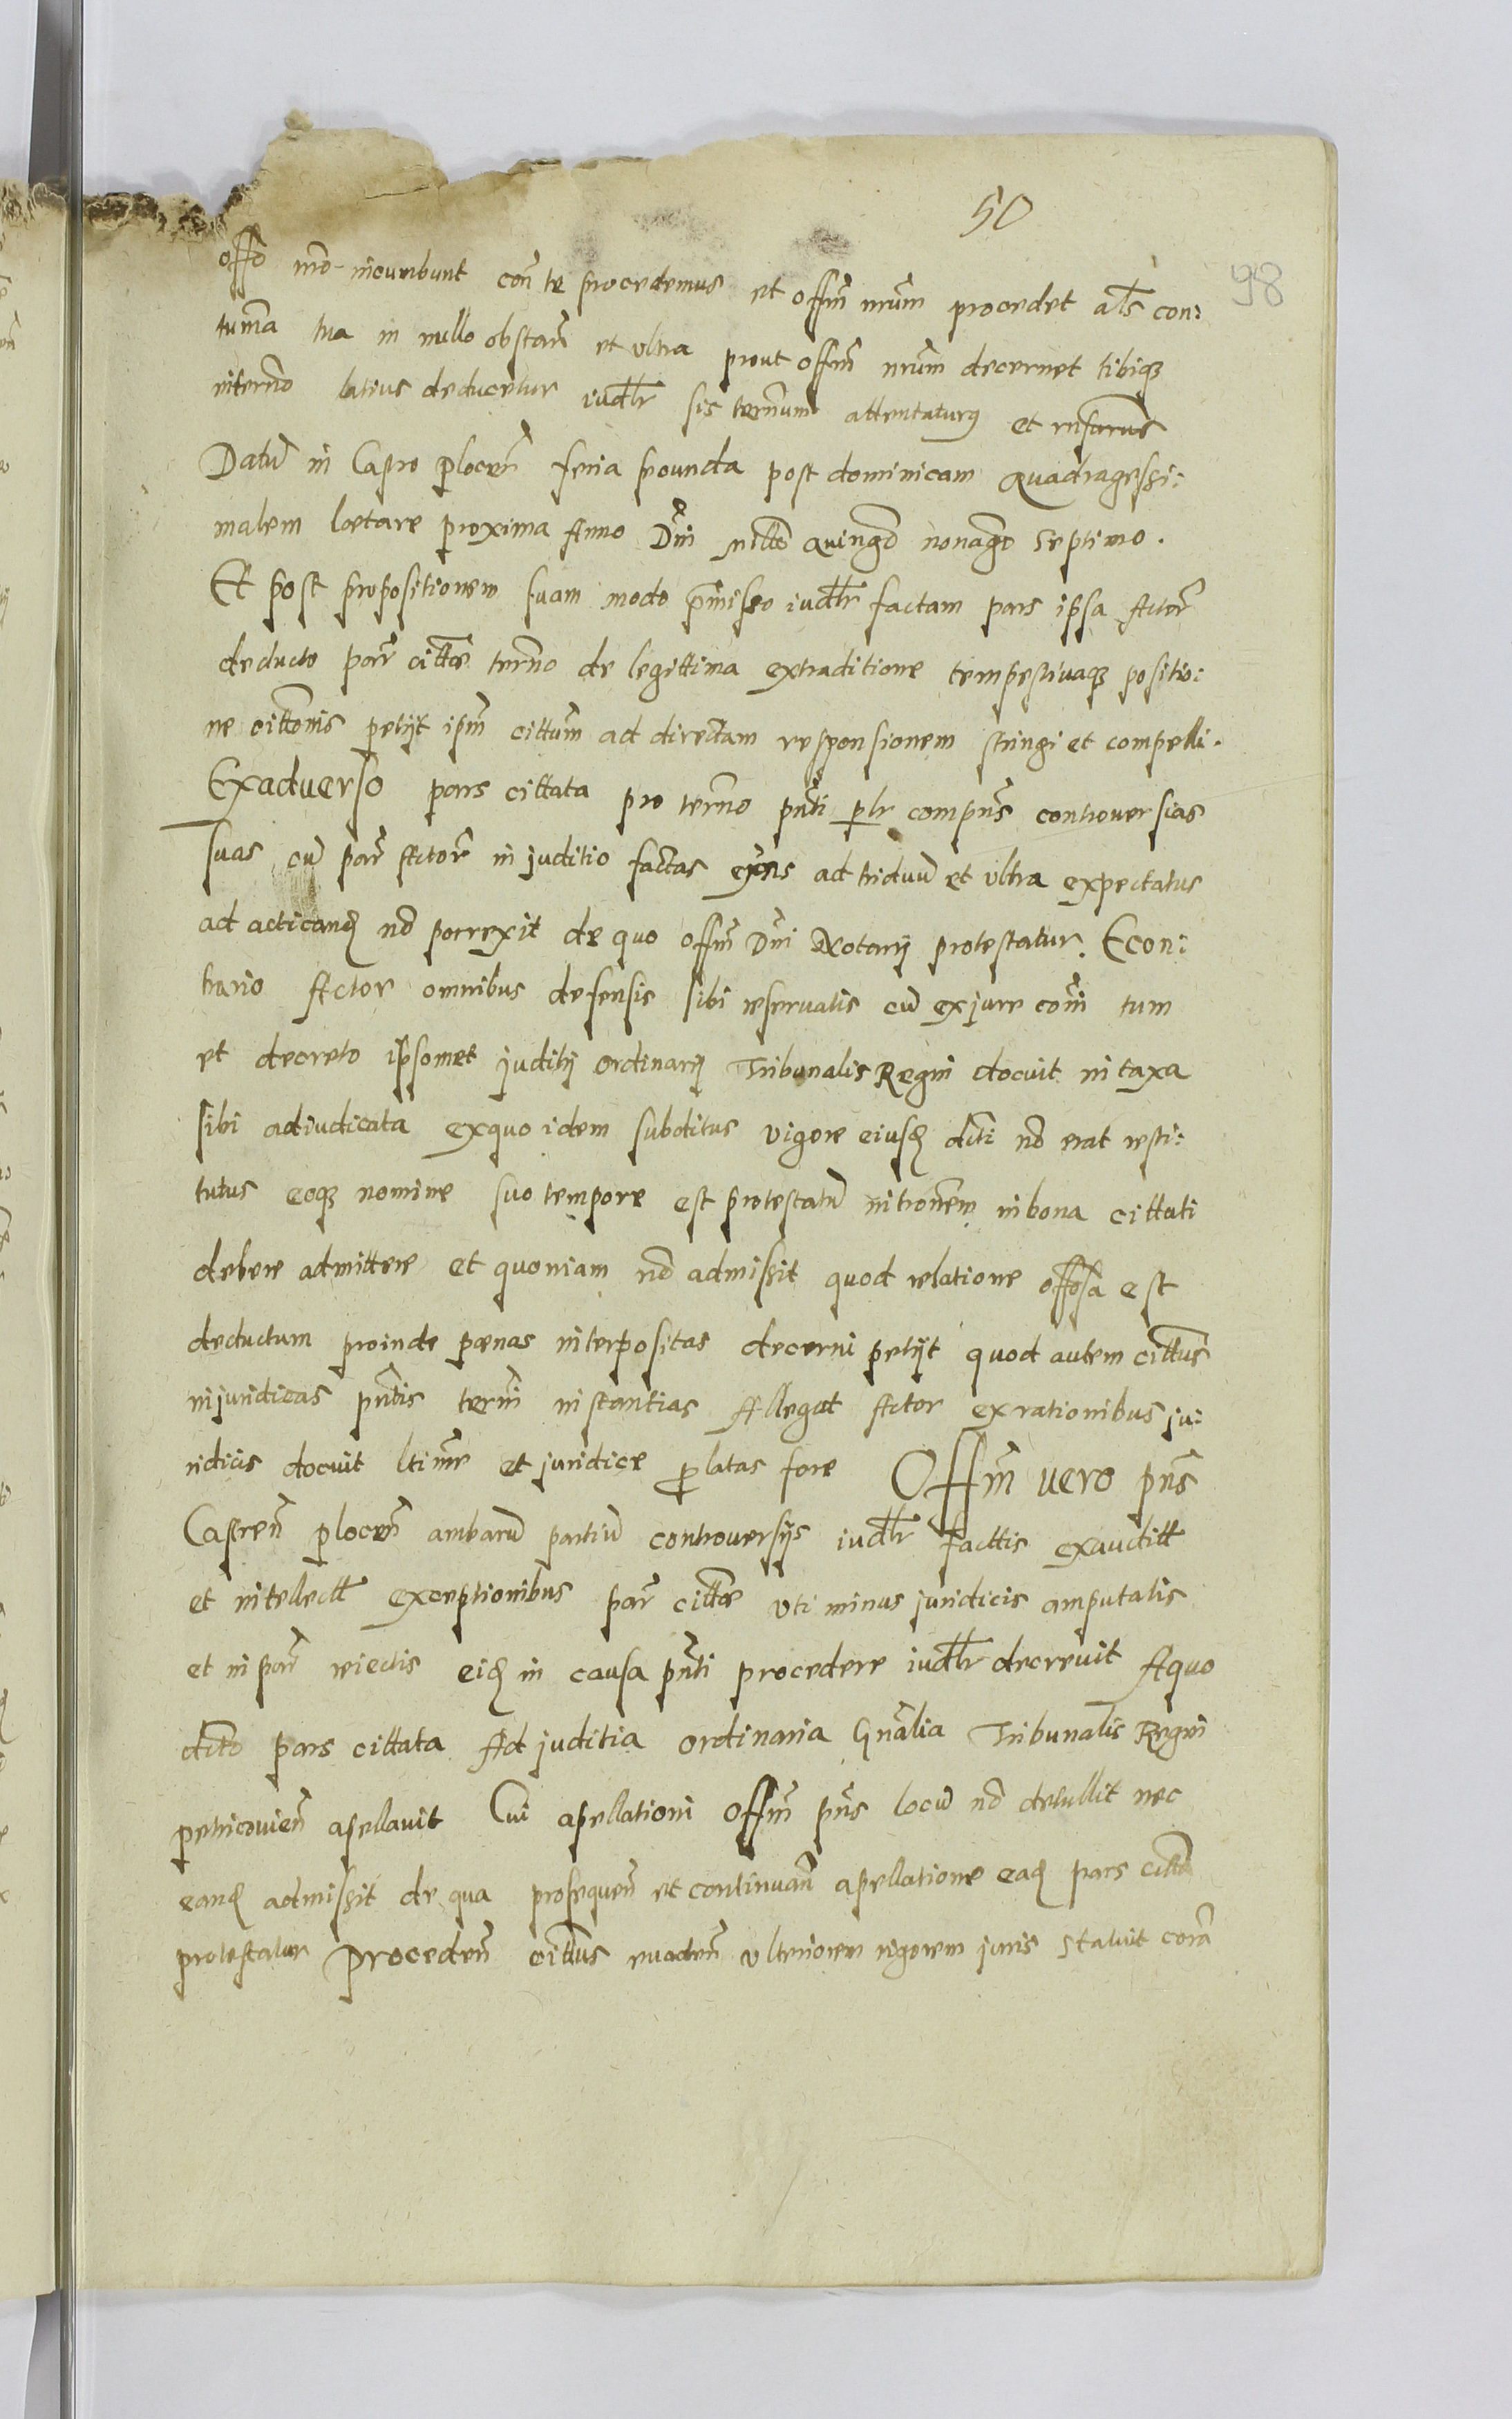 50
98
offo nro incumbunt con te procedemus et offm nrum procedet als con:
tuma tua in nullo obstan et ultra prout offm nrum decernet tibiq
in termo latius deducetur iudlr sis termum attentaturus et rnsurus
Datu in Castro plocen feria secunda post dominicam quadragessi:
malem laetare proxima Anno Dni millo quingo nonago septimo.
Et post propositionem suam modo pmisso iudlr factam pars ipsa Actor
deducto par cittae termo de legittima extraditione tempestivaq positio:
ne cittonis petijt ipm cittum ad directam responsionem stringi et compelli.
Ex adverso pars cittata pro termo pnti plr compns controversias
suas cu par Actor in juditio factas ex ad triduu et ultra expectatus
ad acticand no porrexit de quo offm Dni Notarij protestatur. Econ:
trario Actor omnibus defensis sibi reservatis cu ex jure comi tum
et decreto ipsomet juditij ordinarij Tribunalis Regni docuit in taxa
sibi adiudicata ex quo idem subditus vigore eiusd dcti no erat resti:
tutus eoq nomine suo tempore est protestatu intronem in bona cittati
debere admittere et quoniam no admissit quod relatione offosa est
deductum proinde paenas interpositas decerni petijt quod autem cittus
injuridicas pntis termi instantias Allegat Actor ex rationibus ju:
ridicis docuit ltime et juridice platas fore Offm vero pns
Castren plocen ambaru partiu controversijs iudlr facttis exauditt
et intellectt exceptionibus par cittae uti minus juridicis amputatis
et in par reiectis eid in causa pnti procedere iudlr decrevit A quo
dcto pars cittata Ad juditia ordinaria Gnalia Tribunalis Regni
petricovien apellavit Cui apellationi offm pns locu no detullit nec
eand admissit de qua prosequen et continuan apellatione ead pars citta
protestatur Proceden cittus evaden ulteriorem rigorem juris statuit cora